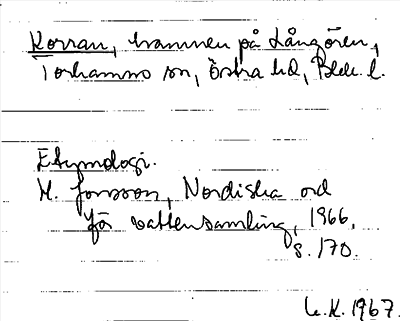 Korran, hamnen på Långören,
Torhamns sn, Östra hd, Blek. l.
Etymologi.
H. Jonsson, Nordiska ord
för vattensamling, 1966,
s. 170.
1967.